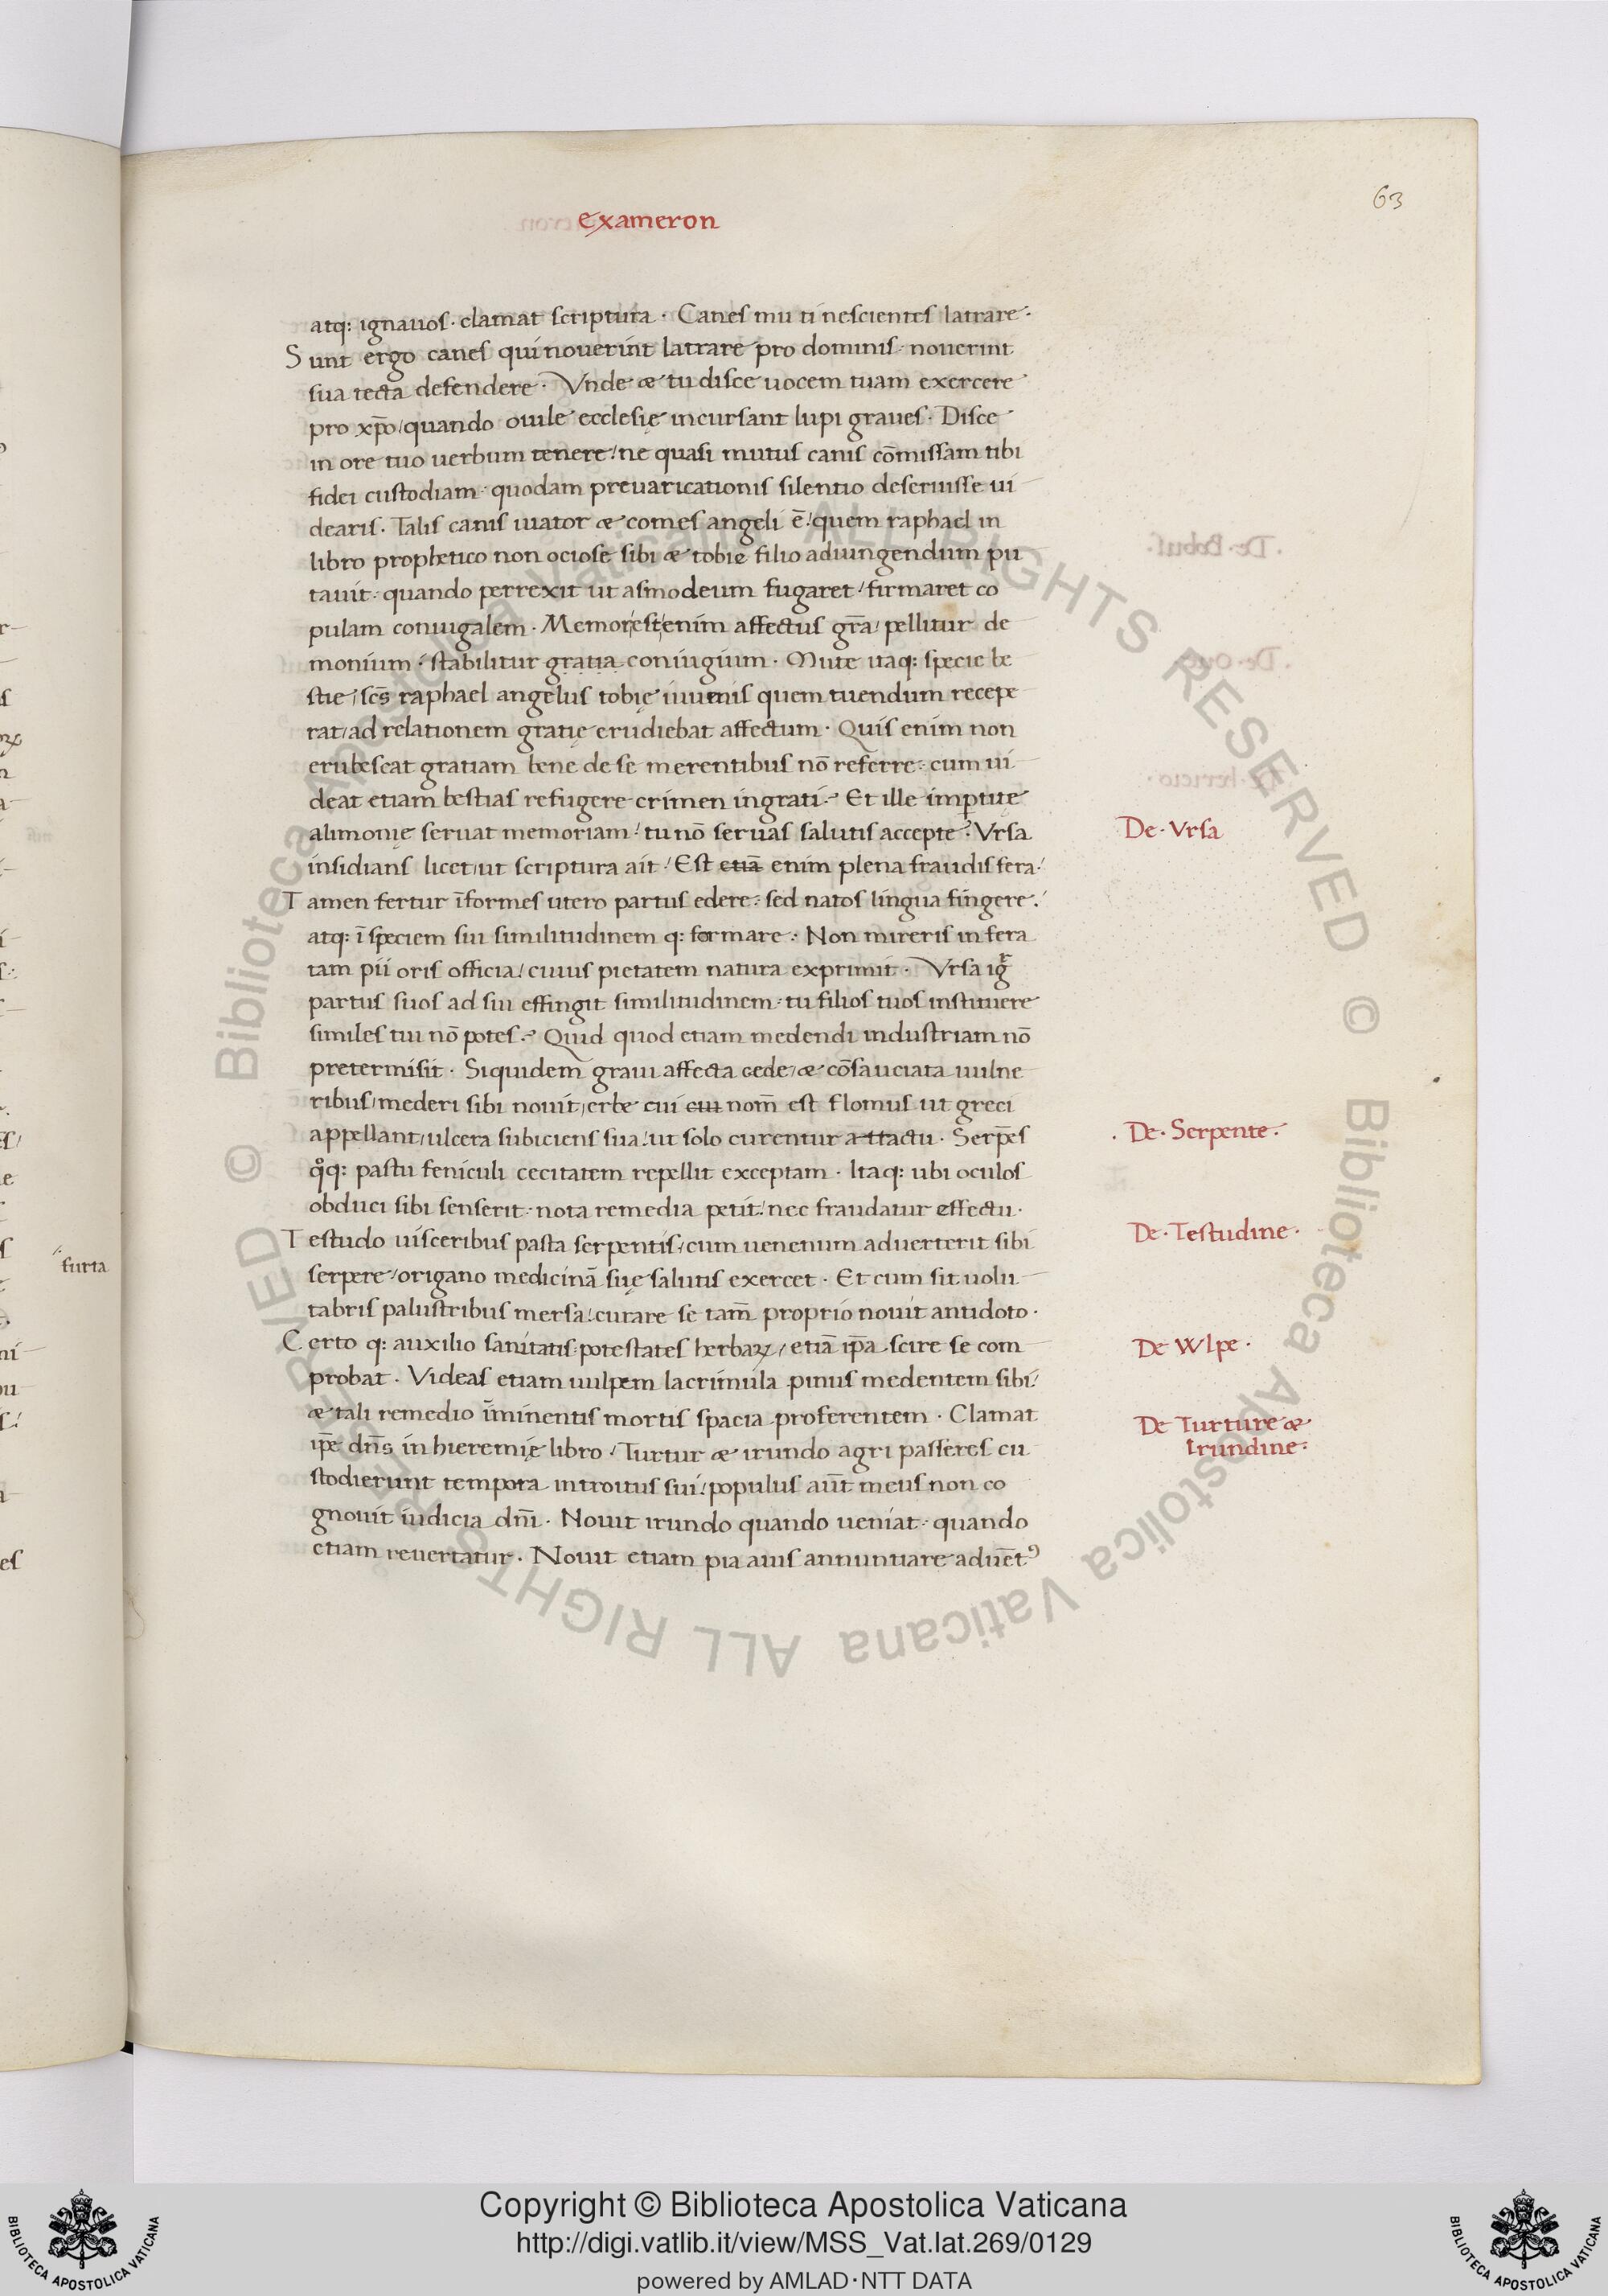 63
exameron
atq: ignauos· clamat scriptura· Canes mu ti nescientes latrare·
Sunt ergo canes qui nouerint latrare pro dominis· nouerint
sua tecta defendere· Vnde & tu disce uocem tuam exercere
pro xp̄o/ quando ouile ecclesię incursant lupi graues· Disce
in ore tuo uerbum tenere/ ne quasi mutus canis cōmissam tibi
fidei custodiam· quodam preuaricationis silentio deseruisse ui
dearis· Talis canis uiator & comes angeli ē/ quem raphael in
libro prophetico non ociose sibi & tobie filio adiungendum pu
tauit· quando perrexit ut asmodeum fugaret/ firmaret co
pulam coniugalem· Memor/est/enim affectus gr̄a/ pellitur de
monium· stabilitur gratia coniugium· Mute itaq: specie be
stie/ sc̄s raphael angelus tobię iuuenis quem tuendum recepe
rat/ ad relationem gratię erudiebat affectum· Quis enim non
erubescat gratiam bene de se merentibus nō referre· cum ui
deat etiam bestias refugere crimen ingrati· Et ille impertitę
alimonię seruat memoriam/ tu nō seruas salutis accepte? Vrsa
insidians licet/ ut scriptura ait/ Est etiā enim plena fraudis fera/
Tamen fertur īformes utero partus edere· sed natos lingua fingere·
atq: ī speciem sui similitudinem q: formare· Non mireris in fera
tam pii oris officia/ cuius pietatem natura exprimit· Vrsa igr̄
partus suos ad sui effingit similitudinem· tu filios tuos instituere
similes tui nō potes· Quid quod etiam medendi industriam nō
pretermisit· Siquidem graui affecta cede/ & cōsauciata uulne
ribus/ mederi sibi nouit/ erbe cui cui nom̄ est flomus ut greci
appellant/ ulcera subiciens sua/ ut solo curentur attactu· Serpēs
qͦq: pastu feniculi cecitatem repellit exceptam· Itaq: ubi oculos
obduci sibi senserit· nota remedia petit/ nec fraudatur effectu·
Testudo uisceribus pasta serpentis/ cum uenenum aduerterit sibi
serpere/ origano medicinā suę salutis exercet· Et cum sit uolu
tabris palustribus mersa/ curare se tam̄ proprio nouit antidoto·
Certo q: auxilio sanitatis potestates herbaꝝ/ etiā ip̄a scire se com
probat· Videas etiam uulpem lacrimula pinus medentem sibi/
& tali remedio īminentis mortis spacia proferentem· Clamat
ip̄e dn̄s in hieremię libro/ Turtur & irundo agri passeres cu
stodierunt tempora introitus sui/ populus aut̄ meus non co
gnouit iudicia dn̄i· Nouit irundo quando ueniat· quando
etiam reuertatur· Nouit etiam pia auis annuntiare aduēt⁹
De· Vrsa
· De· Serpente·
De· Testudine·
De Wlpe·
De Turture &
Irundine:
furta
Copyright © Biblioteca Apostolica Vaticana
http://digi.vatlib.it/view/MSS_Vat.lat.269/0129
powered by AMLAD·NTT DATA
BIBLIOTECA APOSTOLICA VATICANA
BIBLIOTECA APOSTOLICA VATICANA
© Biblioteca Apostolica Vaticana ALL RIGHTS RESERVED © Biblioteca Apostolica Vaticana ALL RIGHTS RESERVED